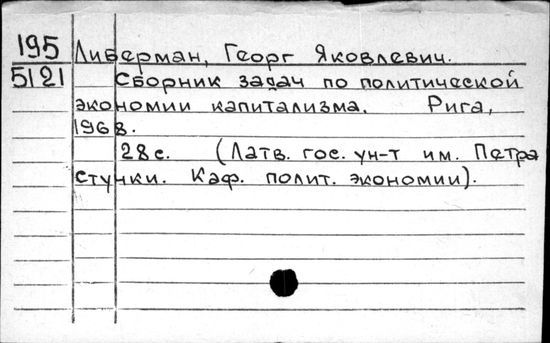 195 Либерман, Георг Яковлевич.
5121 Сборник задач по политической
экономии капитализма. Рига,
1968.
28с. (Латв. гос. ун-т им. Петра
Стучки. Каф. полит. экономии).